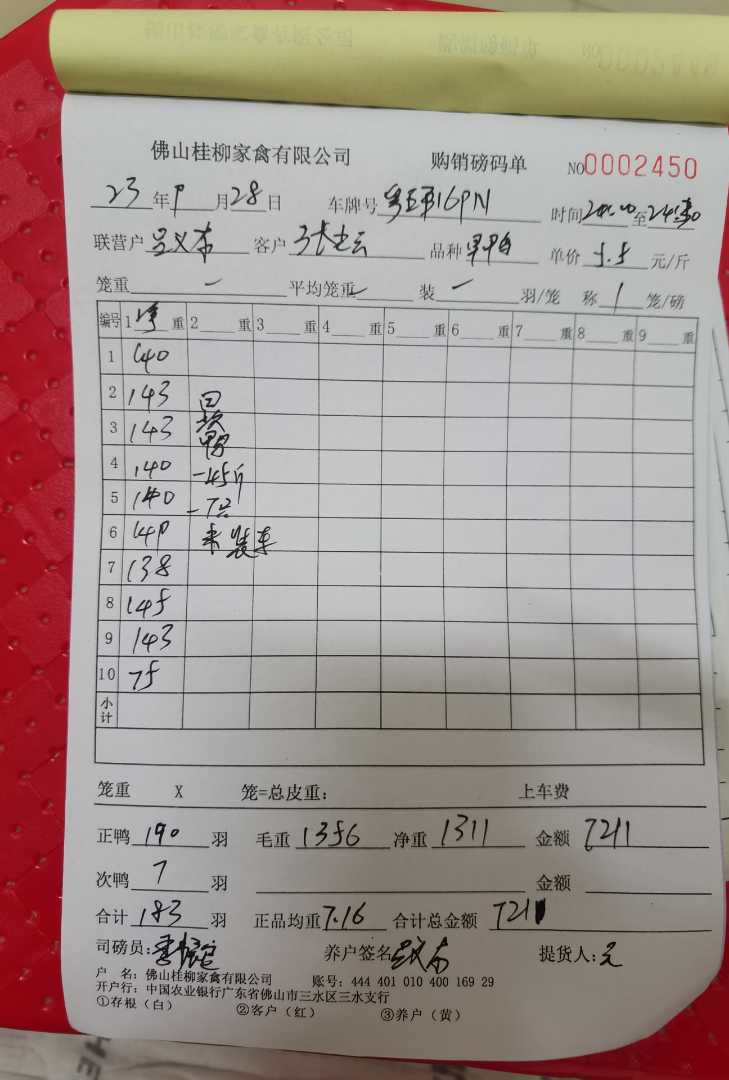 佛山桂柳家禽有限公司 购销磅码单 NO0002450
23年9月28日 车牌号 16PN 时间 至
联营户 吕义南 客户 张志云 品种 单价 5.5 元/斤
笼重 一 平均笼重 一 装 一 羽/笼 称 1 笼/磅
编号 1 净 重 2 重 3 重 4 重 5 重 6 重 7 重 8 重 9 重
1 140
2 143 回
3 143 次鸭
4 140 -45斤
5 140 -7只
6 149 未装车
7 138
8 145
9 143
10 75
小计
笼重 X 笼=总皮重: 上车费
正鸭 190 羽 毛重 1356 净重 1311 金额 7211
次鸭 7 羽 金额
合计 183 羽 正品均重 7.16 合计总金额 7211
司磅员: 养户签名 提货人:
户 名: 佛山桂柳家禽有限公司 账号: 444 401 010 400 169 29
开户行: 中国农业银行广东省佛山市三水区三水支行
①存根(白) ②客户(红) ③养户(黄)